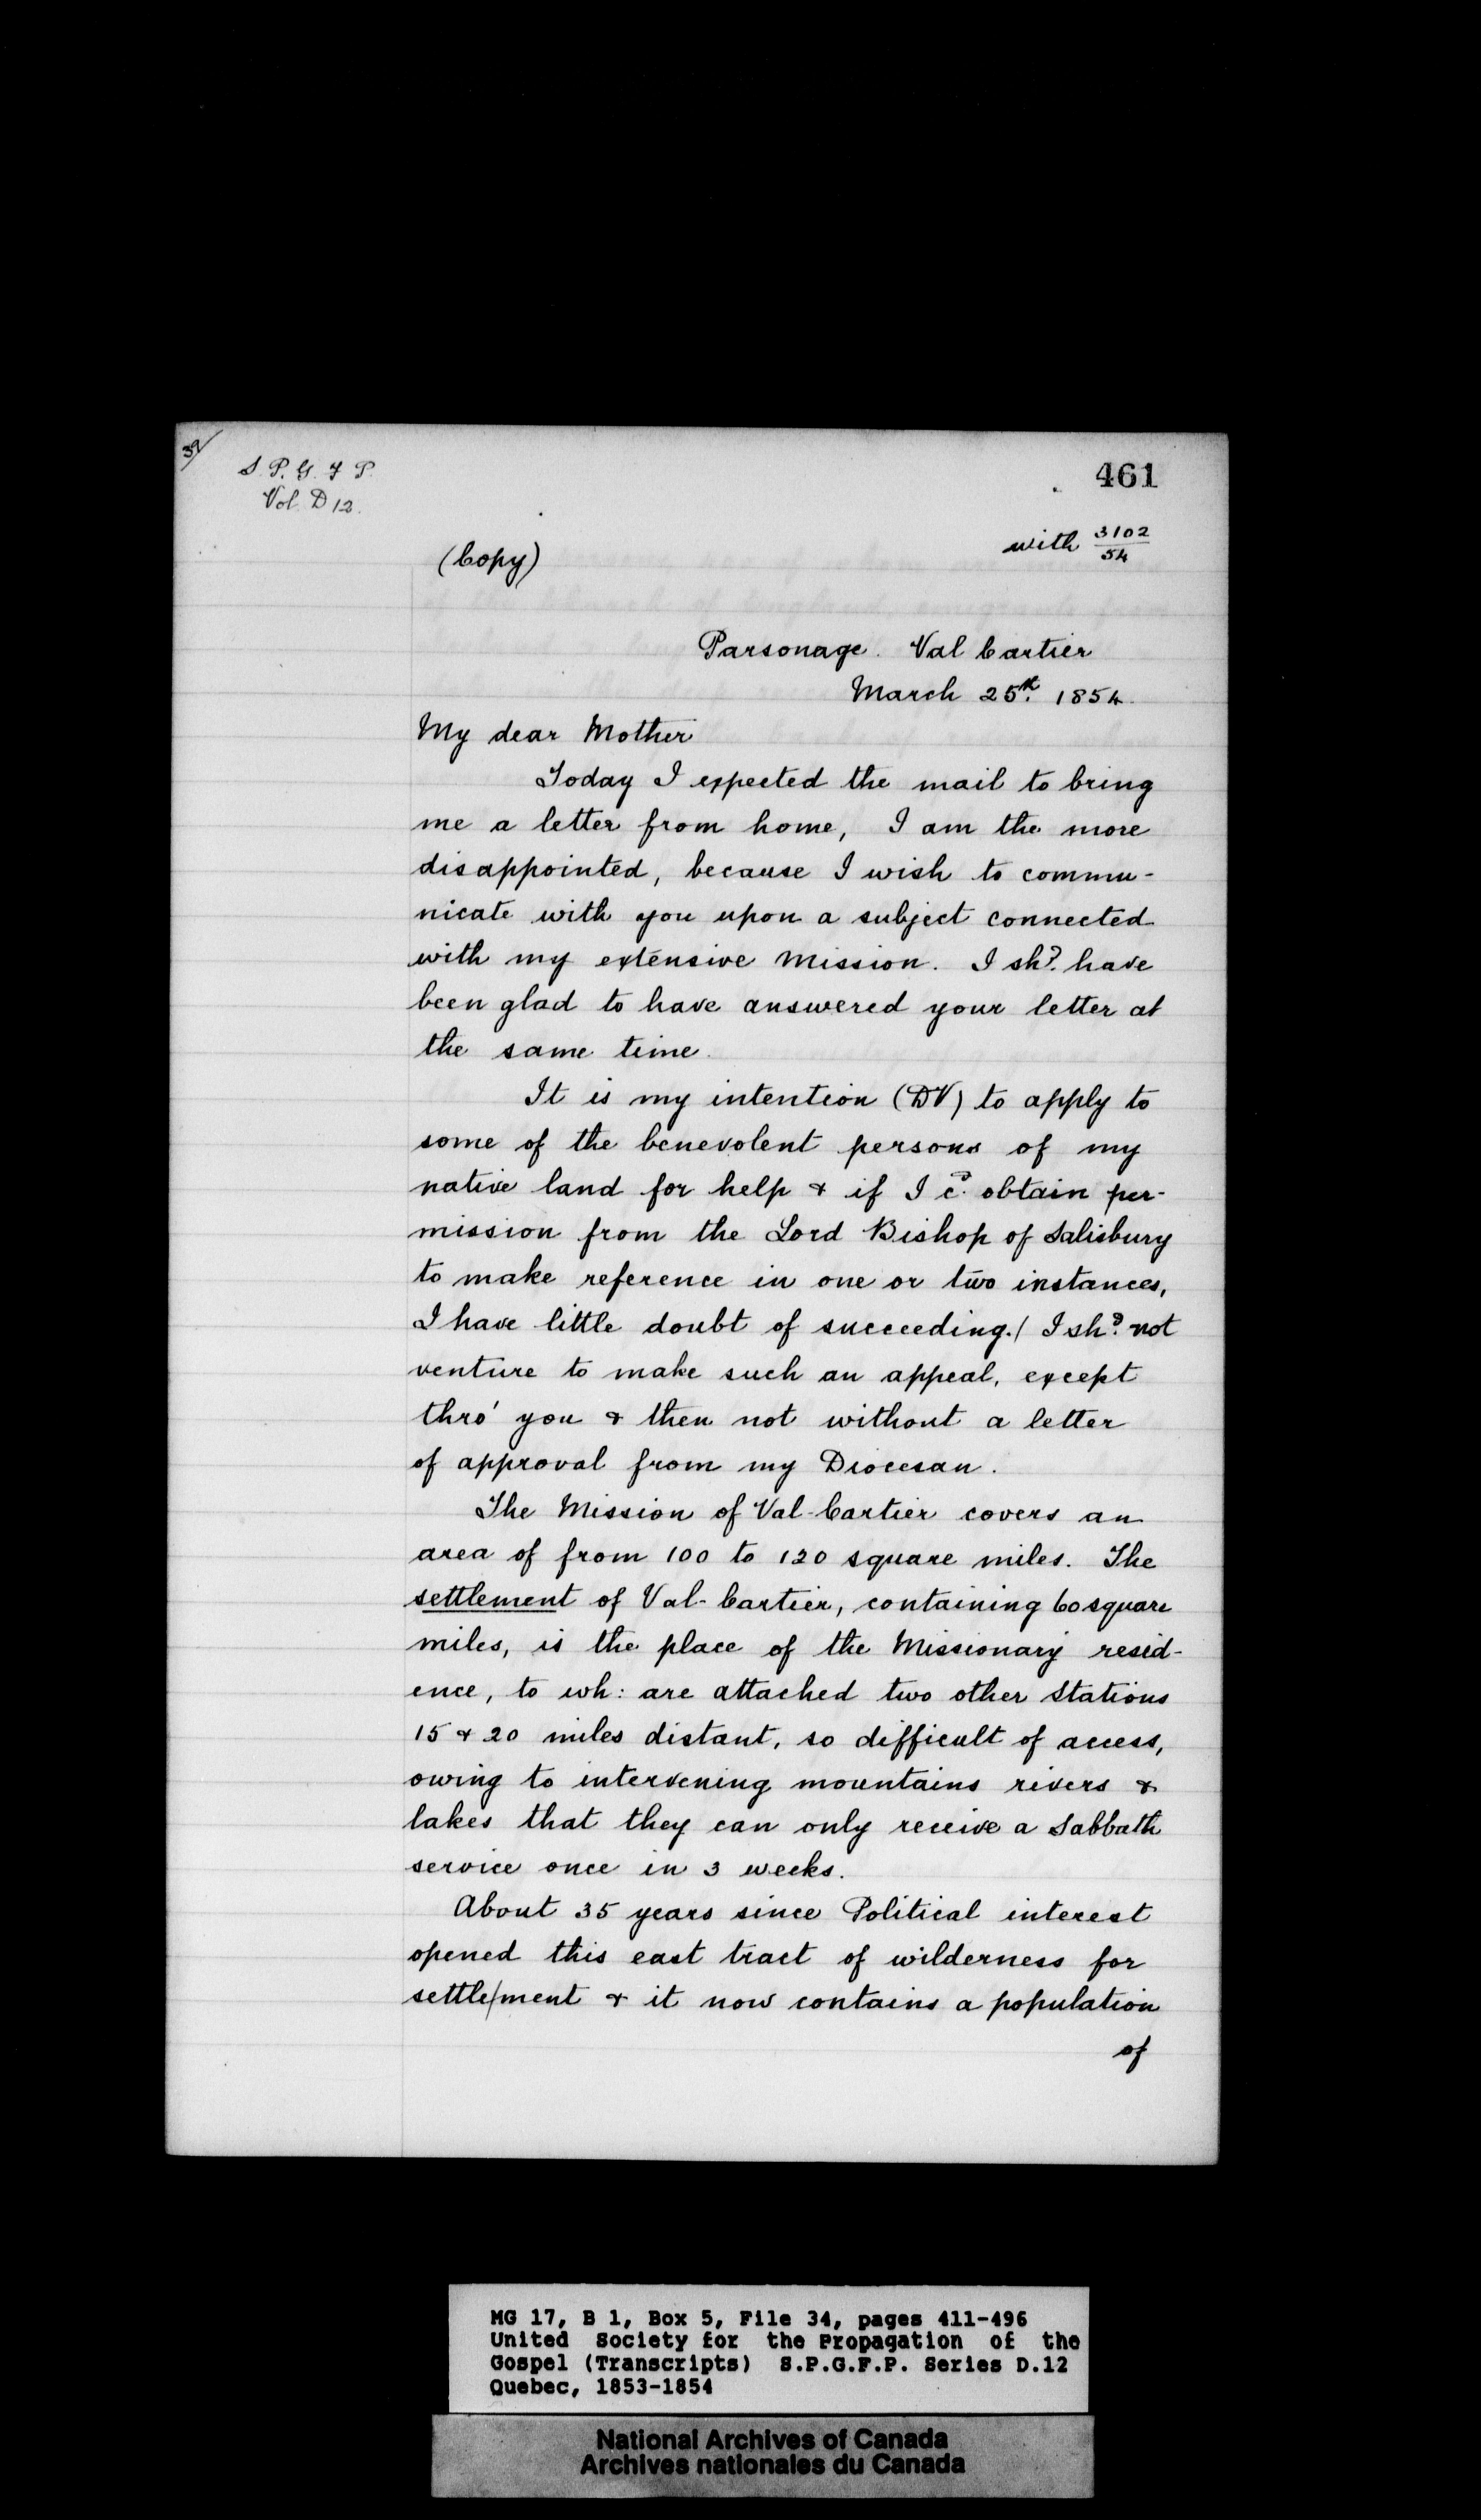 39/
S. P. G. F P.
Vol. D 12.
461
with 3102/54
(Copy)
Parsonage. Val Cartier
March 25th. 1854.
My dear Mother
Today I expected the mail to bring
me a letter from home, I am the more
disappointed, because I wish to commu-
nicate with you upon a subject connected
with my extensive Mission. I shd. have
been glad to have answered your letter at
the same time.
It is my intention (DV) to apply to
some of the benevolent persons of my
native land for help & if I cd. obtain per-
mission from the Lord Bishop of Salisbury
to make reference in one or two instances,
I have little doubt of succeeding./ I shd. not
venture to make such an appeal, except
thro' you & then not without a letter
of approval from my Diocesan.
The Mission of Val-Cartier covers an
area of from 100 to 120 square miles. The
settlement of Val-Cartier, containing 60 square
miles, is the place of the Missionary resid-
ence, to wh: are attached two other Stations
15 & 20 miles distant, so difficult of access,
owing to intervening mountains rivers &
lakes that they can only receive a Sabbath
service once in 3 weeks.
About 35 years since Political interest
opened this east tract of wilderness for
settle/ment & it now contains a population
of
MG 17, B 1, Box 5, File 34, pages 411-496
United Society for the Propagation of the
Gospel (Transcripts) S.P.G.F.P. Series D.12
Quebec, 1853-1854
National Archives of Canada
Archives nationales du Canada